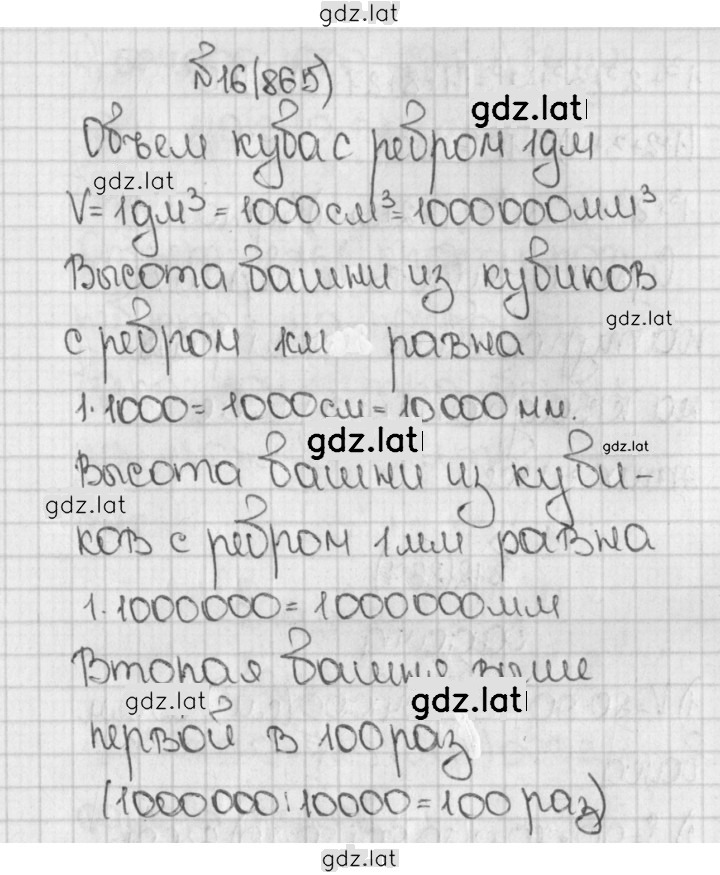 gdz.lat
№16(865)
gdz.lat
Объем куба с ребром 1дм
gdz.lat
V=1дм³=1000см³=1000000мм³
Высота башни из кубиков
gdz.lat
с ребром 1см равна
1·1000=1000см=10000мм.
gdz.lat
gdz.lat
Высота башни из куби-
gdz.lat
ков с ребром 1мм равна
1·1000000=1000000мм
Вторая башня выше
gdz.lat
gdz.lat
первой в 100 раз
(1000000:10000=100 раз)
gdz.lat